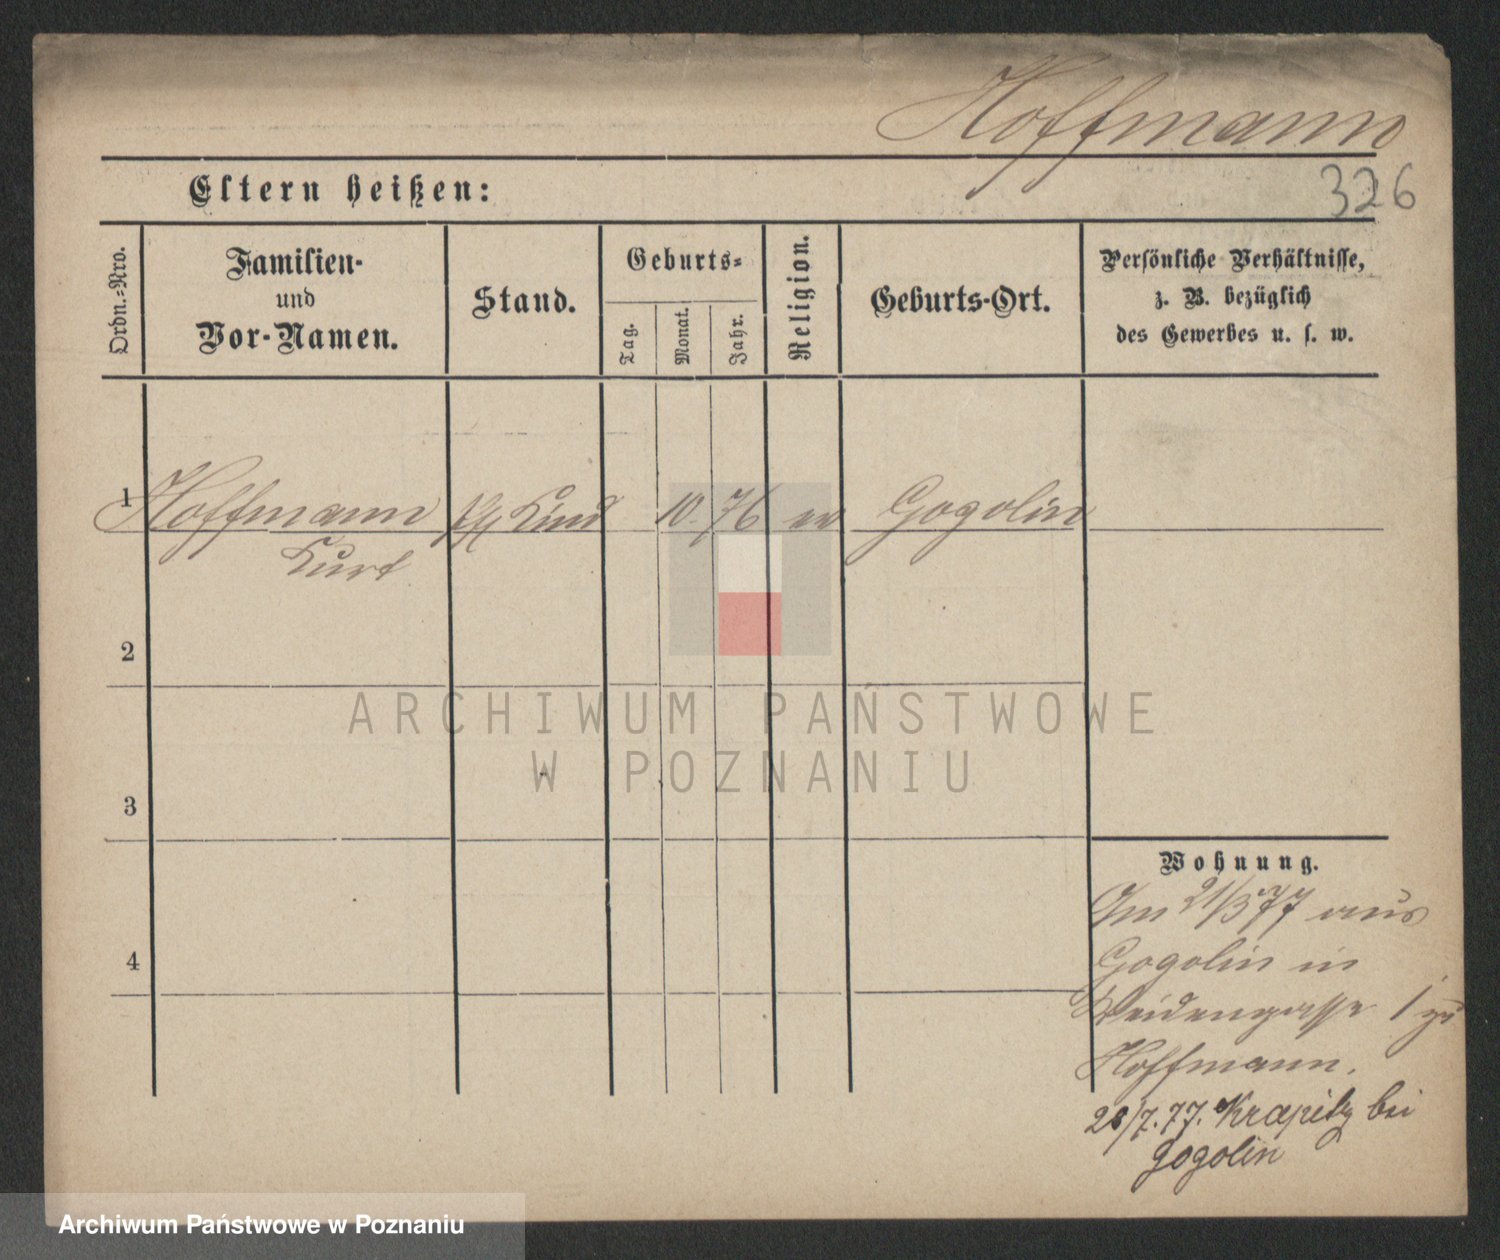 Hoffmann
326
Eltern heißen:
Ordn.=Nro.
Familien-
und
Vor-Namen.
Stand.
Geburts=
Tag.
Monat.
Jahr.
Religion.
Geburts-Ort.
Persönliche Verhältnisse,
z. B. bezüglich
des Gewerbes u. s. w.
1 Hoffmann Kind 10. 76 ev Gogolin
Kurt
2
3
4
ARCHIWUM PAŃSTWOWE
W POZNANIU
Wohnung.
Am 21/3 77 aus
Gogolin in
Weidengasse 1 zu
Hoffmann.
28/7.77. Krapitz bei
Gogolin
Archiwum Państwowe w Poznaniu